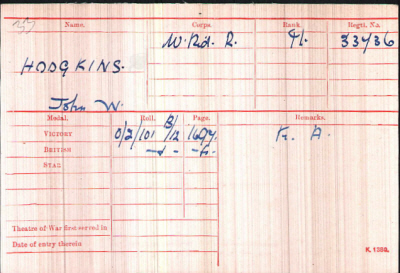 Name. Corps. Rank Regtl. No.
W. Rid. R. Pt. 33436
HODGKINS.
John W.
Medal. Roll. Page. Remarks.
VICTORY 0/2/101 B/12 1697. K. A.
BRITISH -do- -do-
STAR
Theatre of War first served in
Date of entry therein
K. 1380.